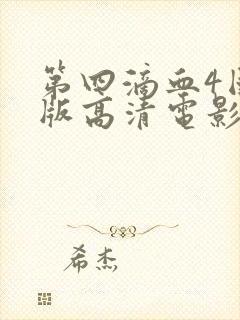 第四滴血4
版高清电影
希杰